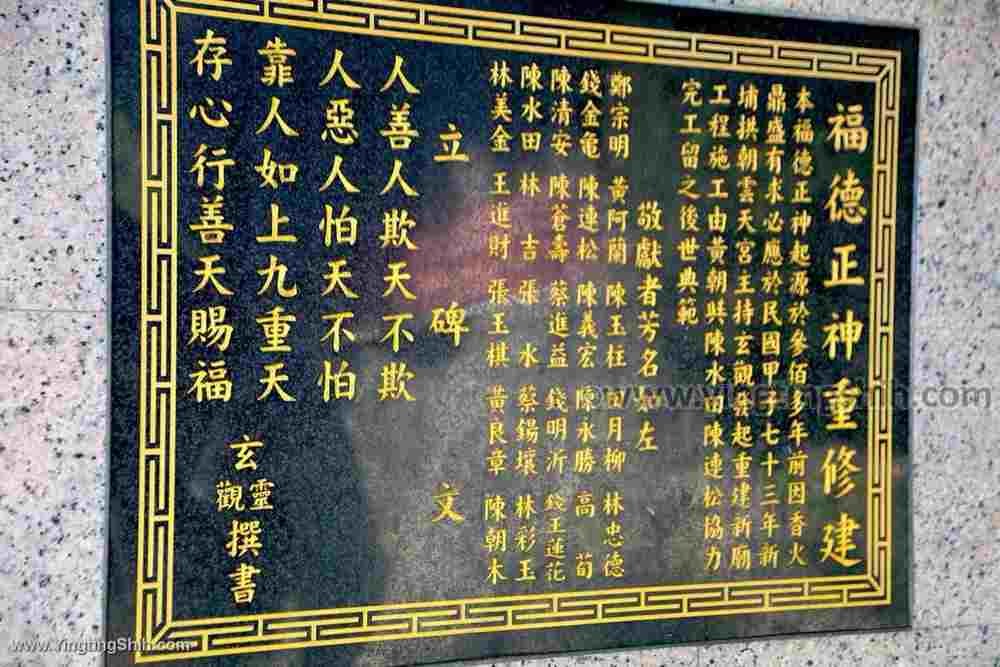 福德正神重修建
本福德正神起源於參佰多年前因香火
鼎盛有求必應於民國甲子七十三年新
埔拱朝雲天宮主持玄觀發起重建新廟
工程施工由黃朝與陳水田陳連松協力
完工留之後世典範
敬獻者芳名如左
鄭宗明 黃阿蘭 陳玉柱 田月柳 林忠德
錢金龜 陳連松 陳義宏 陳永勝 高 荀
陳清安 陳蒼壽 蔡進益 錢明沂 錢王蓮花
陳水田 林 吉 張 水 蔡錫壤 林彩玉
林美金 王進財 張王棋 黃良章 陳朝木
立碑文
人善人欺天不欺
人惡人怕天不怕
靠人如上九重天
存心行善天賜福
玄靈觀撰書
www.YingtingShih.com
www.YingtingShih.com